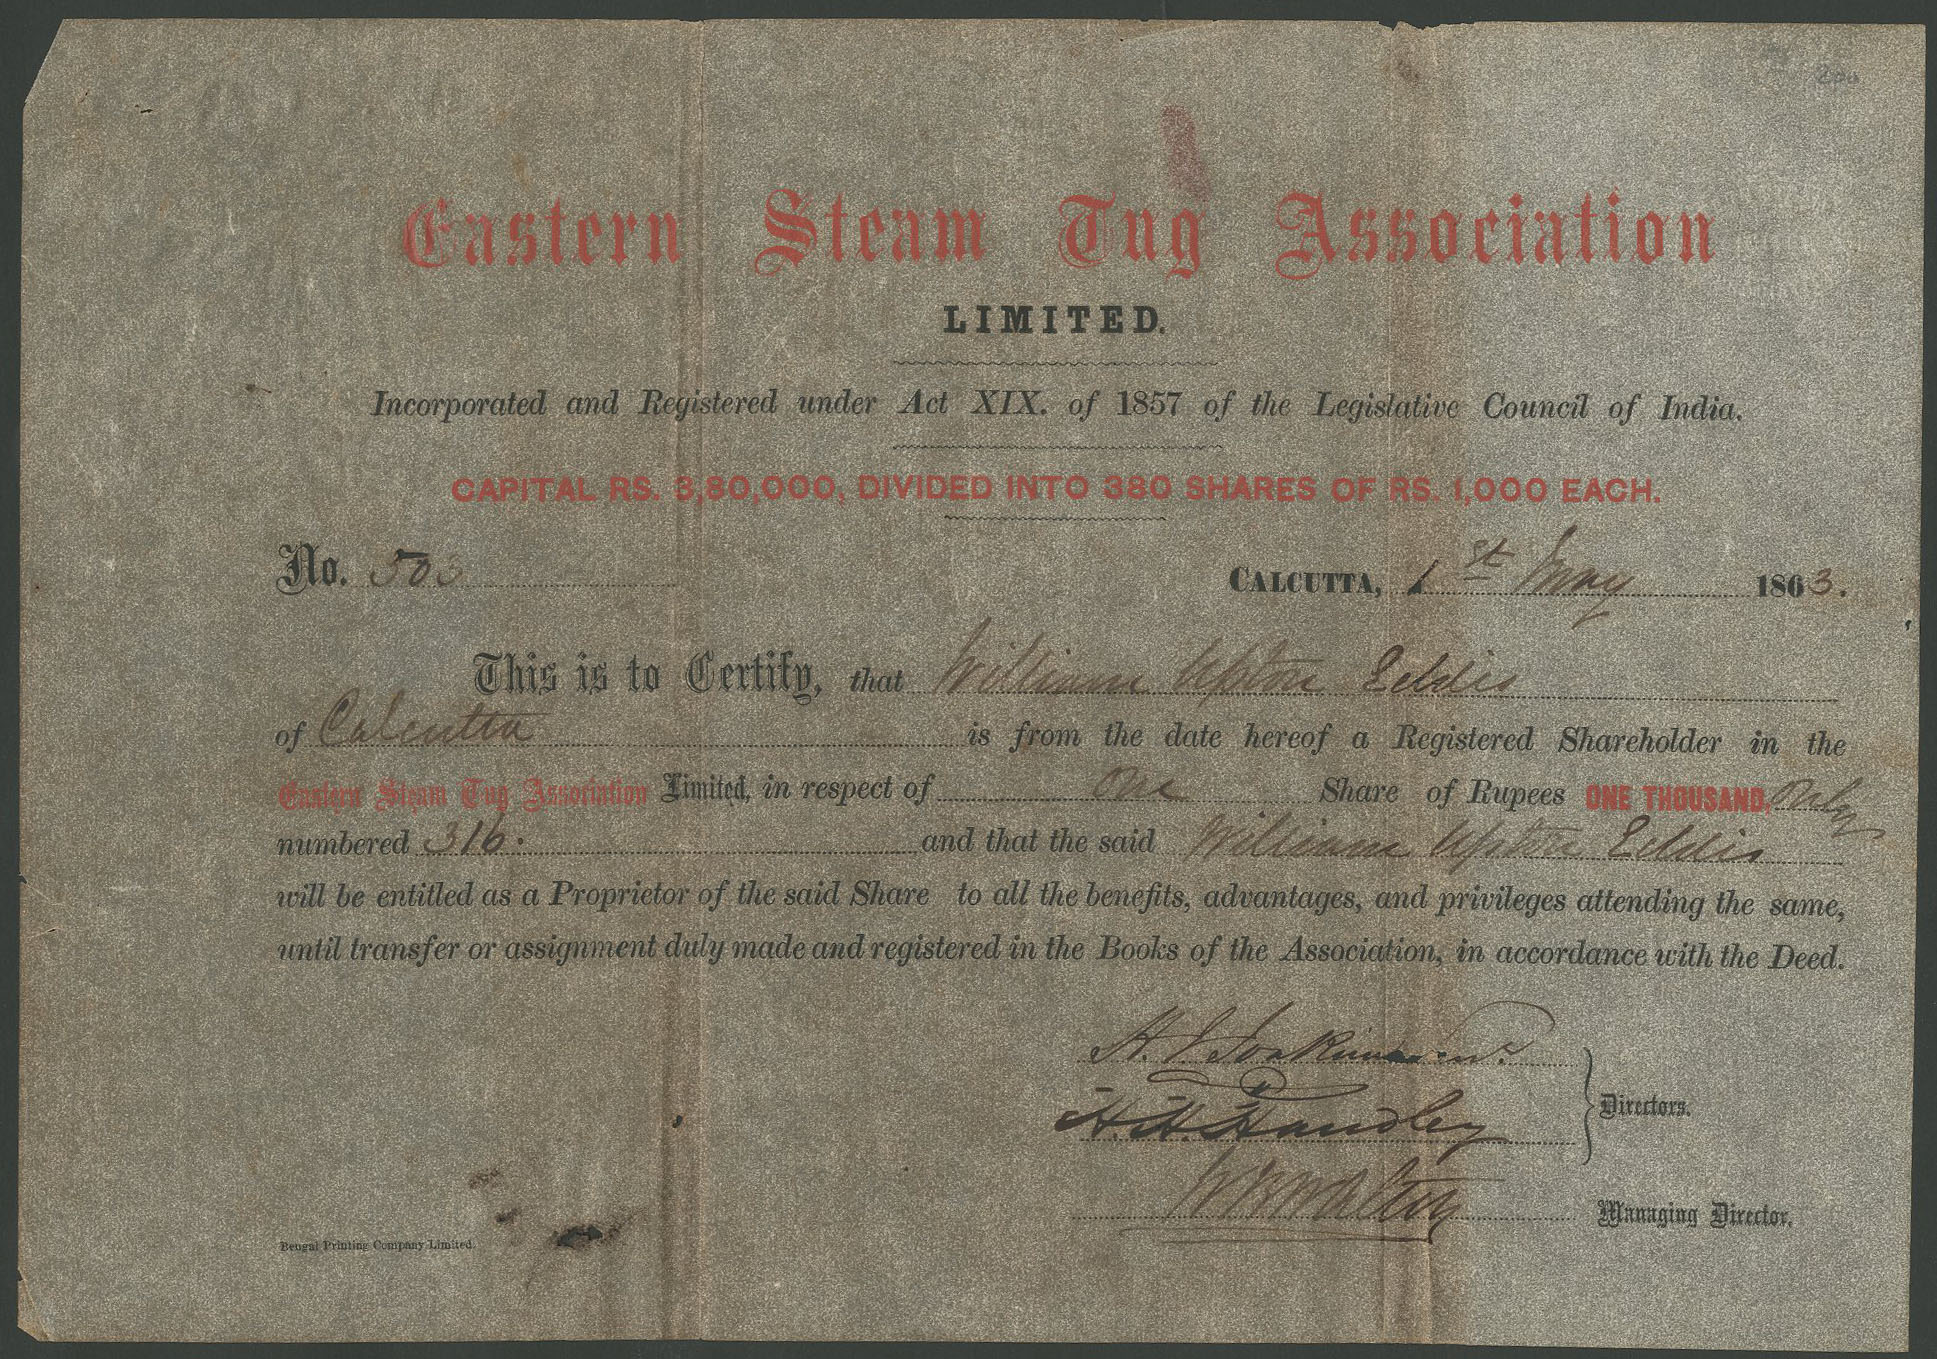 Eastern Steam Tug Association
LIMITED.
Incorporated and Registered under Act XIX. of 1857 of the Legislative Council of India.
CAPITAL RS. 3,80,000, DIVIDED INTO 380 SHARES OF RS. 1,000 EACH.
No. 503 CALCUTTA, 1st May 1863.
This is to Certify, that William Upton Eddis
of Calcutta is from the date hereof a Registered Shareholder in the
Eastern Steam Tug Association Limited, in respect of One Share of Rupees ONE THOUSAND, Only
numbered 316. and that the said William Upton Eddis
will be entitled as a Proprietor of the said Share to all the benefits, advantages, and privileges attending the same,
until transfer or assignment duly made and registered in the Books of the Association, in accordance with the Deed.
Directors.
Managing Director.
Bengal Printing Company Limited.